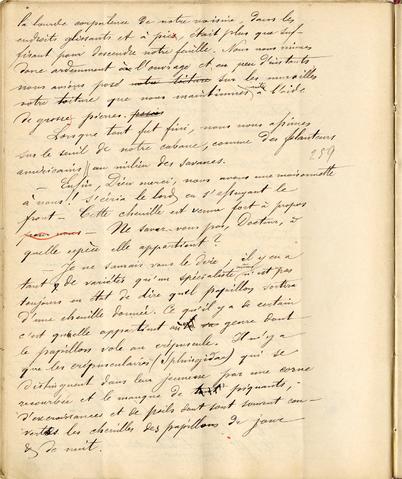 la lourde corpulence de notre voisine, dans les
endroits glissants et à pic, était plus que suf-
fisant pour descendre notre feuille. Nous nous mîmes
donc ardemment à l'ouvrage et en peu d'instants
nous avions posé notre toiture sur les murailles
notre toiture que nous maintînmes à l'aide
de grosses pierres.
Lorsque tout fut fini, nous nous assîmes
sur le seuil de notre cabane, comme des planteurs
américains au milieu des savanes.
259
Enfin, Dieu merci, nous avons une maisonnette
à nous! S'écria le lord en s'essuyant le
front — Cette chenille est venue fort à propos
— Ne savez-vous pas, Docteur, à
quelle espèce elle appartient?
— Je ne saurais vous le dire, il y en a
tant de variétés qu'un spécialiste n'est pas
toujours en état de dire quel papillon sortira
d'une chenille donnée. Ce qu'il y a de certain
c'est qu'elle appartient au genre dont
le papillon vole au crépuscule. Il n'y a
que les crépusculaires (Sphingidae) qui se
distinguent dans leur jeunesse par une corne
recourbée et le manque de piquants,
d'excroissances et de poils dont sont souvent cou-
vertes les chenilles des papillons de jour
& de nuit.